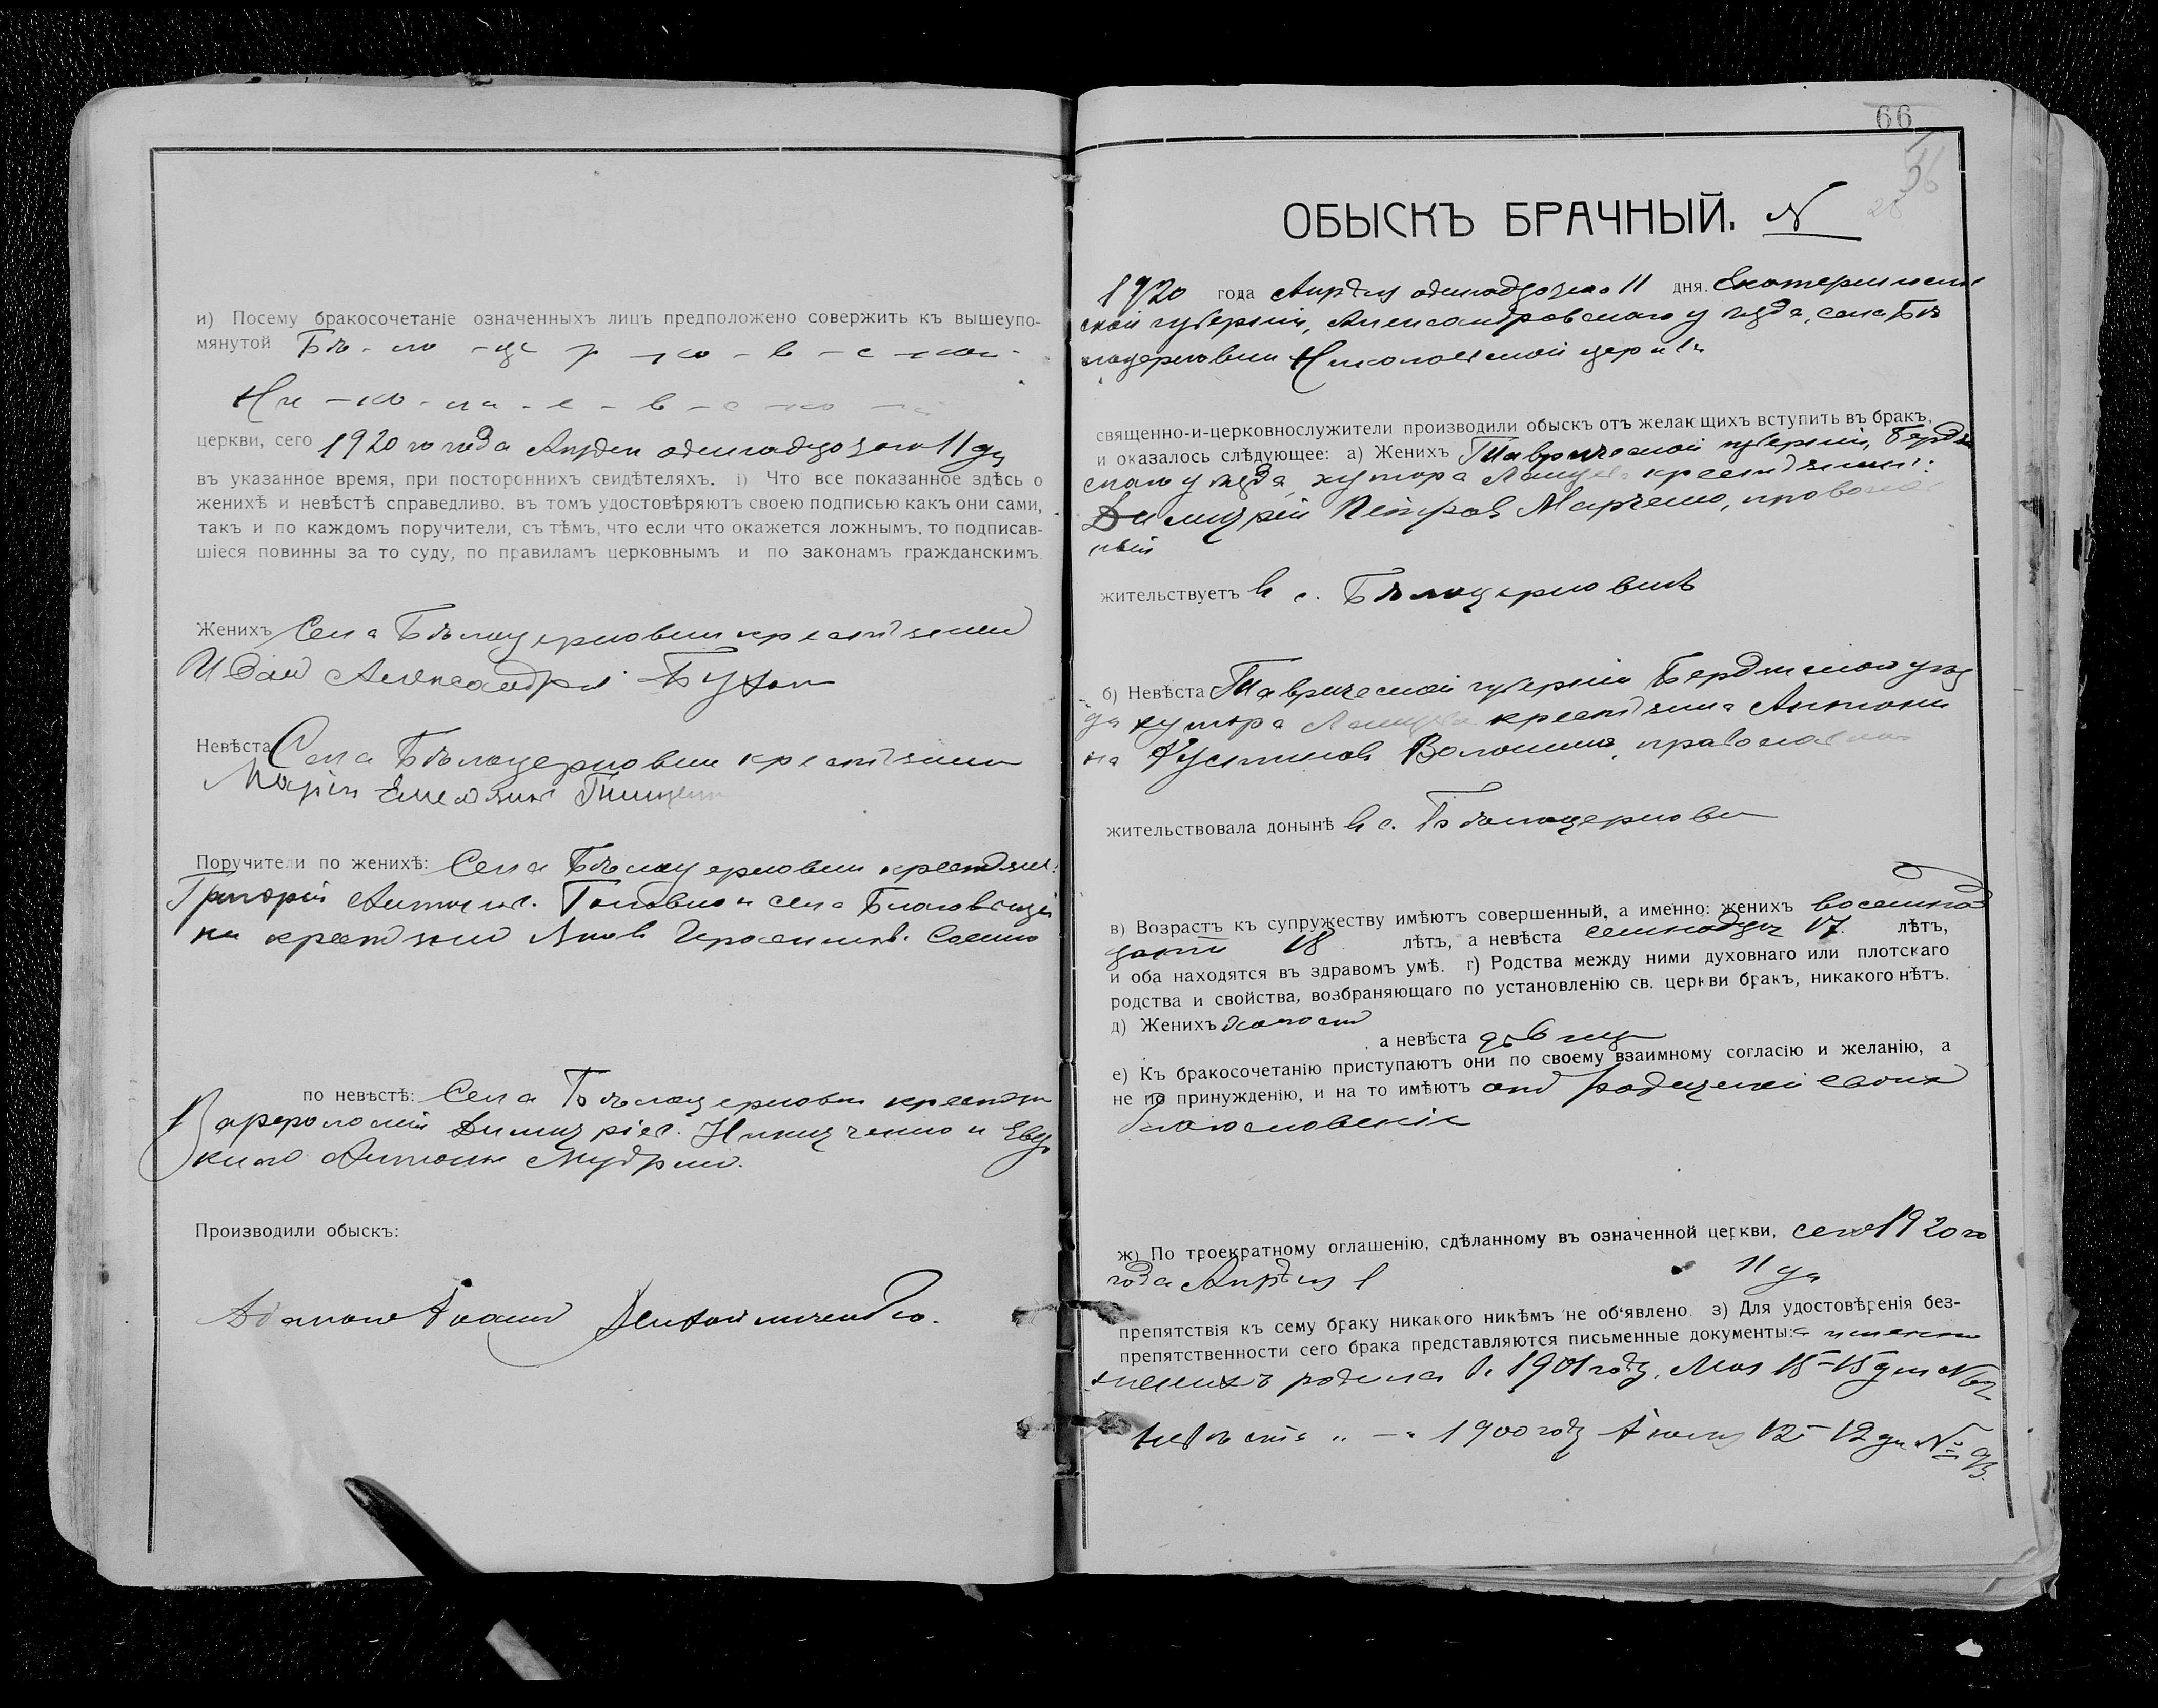 и) Посему бракосочетаніе означенныхъ лицъ предположено совержить къ вышеупо-
мянутой Бѣ - ло - це р - ко - в - с - кой -
Ни - ко - ла - е - в - с - ко - й
церкви, сего 1920 го года Апрѣля одинадцатого 11 дня
въ указанное время, при постороннихъ свидѣтеляхъ. і) Что все показанное здѣсь о
женихѣ и невѣстѣ справедливо, въ томъ удостовѣряютъ своею подписью какъ они сами,
такъ и по каждомъ поручители, съ тѣмъ, что если что окажется ложнымъ, то подписав-
шіеся повинны за то суду, по правиламъ церковнымъ и по законамъ гражданскимъ.
Женихъ Села Бѣлоцерковки крестьянин
Иван Александров
Невѣста Села Бѣлоцерковки крестьянка
Марія
Поручители по женихѣ: Села Бѣлоцерковки крестьян:
Григорій Головко и села
крестьянин Яков
по невѣстѣ: Села Бѣлоцерковки крестьян
Варфоломей Димитріев. Никитченко и
Антонов Мудрий.
Производили обыскъ:
66
36
28
ОБЫСКЪ БРАЧНЫЙ. N
1920 года Апрѣля одинадцатого 11 дня. Екатеринослав
ской губерніи, Александровского уѣзда, села Бѣ
лоцерковки Николаевской церкви
священно-и-церковнослужители производили обыскъ отъ желающихъ вступить въ бракъ,
и оказалось слѣдующее: а) Женихъ Таврической губерніи, Бердян
ского уѣзда, хутора крестьянин:
Димитрій Петров Марченко, православ
ный
жительствуетъ в с. Бѣлоцерковкѣ
б) Невѣста Таврической губерніи Бердянского уѣз
да хутора крестьянка Антони
на Іустинова Волошина, православная
жительствовала донынѣ в с. Бѣлоцерковки
в) Возрастъ къ супружеству имѣютъ совершенный, а именно: женихъ восемнад
цати 18 лѣтъ, а невѣста семнадцати 17. лѣтъ,
и оба находятся въ здравомъ умѣ. г) Родства между ними духовнаго или плотскаго
родства и свойства, возбраняющаго по установленію св. церкви бракъ, никакого нѣтъ.
д) Женихъ холост
а невѣста дѣвица
е) Къ бракосочетанію приступаютъ они по своему взаимному согласію и желанію, а
не по принужденію, и на то имѣютъ от родителей своих
благословеніе
ж) По троекратному оглашенію, сдѣланному въ означенной церкви, сего 1920 го
года Апрѣля 1 11 дня
препятствія къ сему браку никакого никѣмъ не об‘явлено. з) Для удостовѣренія без-
препятственности сего брака представляются письменные документы: а именно
женихъ родился в 1901 году, Мая 15 - 15 дня
невѣста „ - „ 1900 году Іюня 12 - 12 дня № 93.